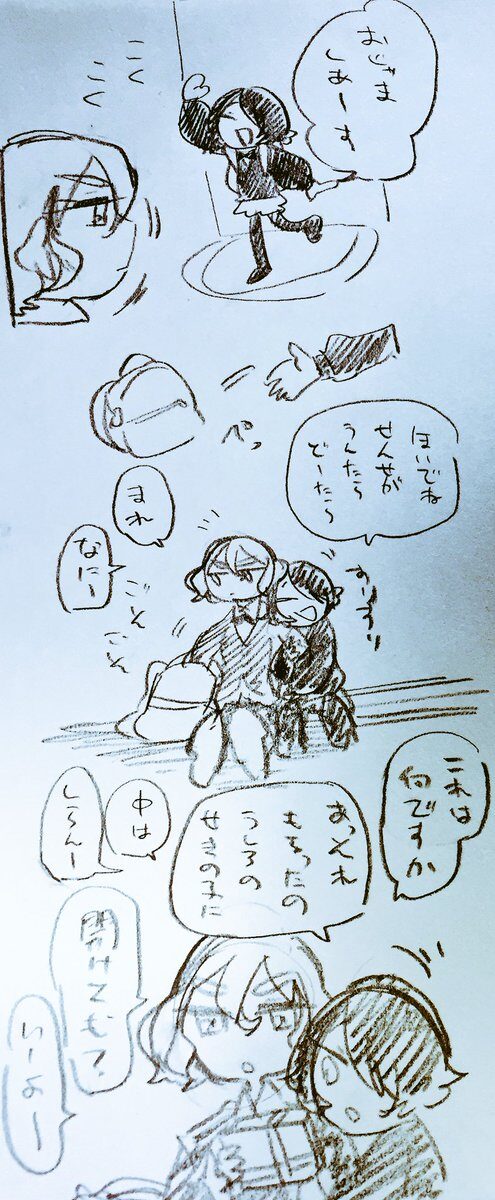 おじゃま
しあーす
こく
こく
ぺっ
ほいでね
せんせが
うんたら
どーたら
まれ
なにー
ごそ
ごそ
すりすり
これは
何ですか
あっそれ
もらったの
うしろの
せきの子に
中は
しらんー
開けても?
いーよー